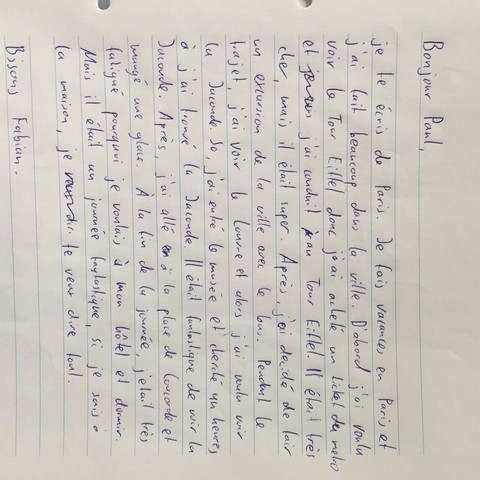 Bonjour Paul,
je te écris de Paris. Je fais vacances en Paris et
j'ai fait beaucoup dans la ville. D'abord j'ai voulu
voir le Tour Eiffel donc j'ai acheté un ticket du metro
et j'ai conduit au Tour Eiffel. Il était très
cher, mais il était super. Après, j'ai decidé de fair
un excursion de la ville avec le bus. Pendent le
trajet, j'ai voir le Louvre et alors j'ai voulu voir
la Joconde. So, j'ai entré le musée et cherché un heures
à j'ai trouvé la Joconde. Il était fantastique de voir la
Joconde. Après, j'ai allé à la place de Concorde et
mangé une glace. À la fin de la journée, j'etait très
fatigué pourquoi je voulais à mon hôtel et dormir.
Mais il était un journée fantastique, si je suis à
la maison, je te veux dire tout.
Bisous Fabian.